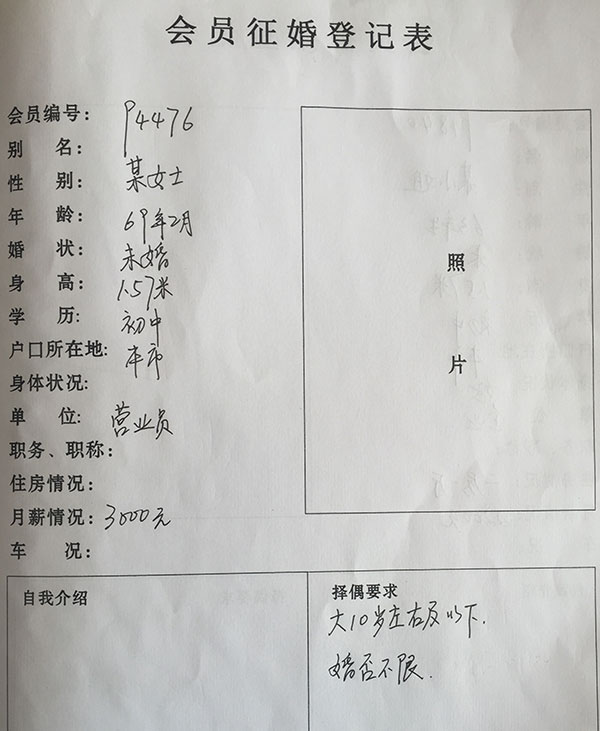 会员征婚登记表
会员编号: P4476
别 名:
性 别: 某女士
年 龄: 69年2月
婚 状: 未婚
身 高: 1.57米
学 历: 初中
户口所在地: 本市
身体状况:
单 位: 营业员
职务、职称:
住房情况:
月薪情况: 3000元
车 况:
照
片
自我介绍
择偶要求
大10岁左右及以下.
婚否不限.